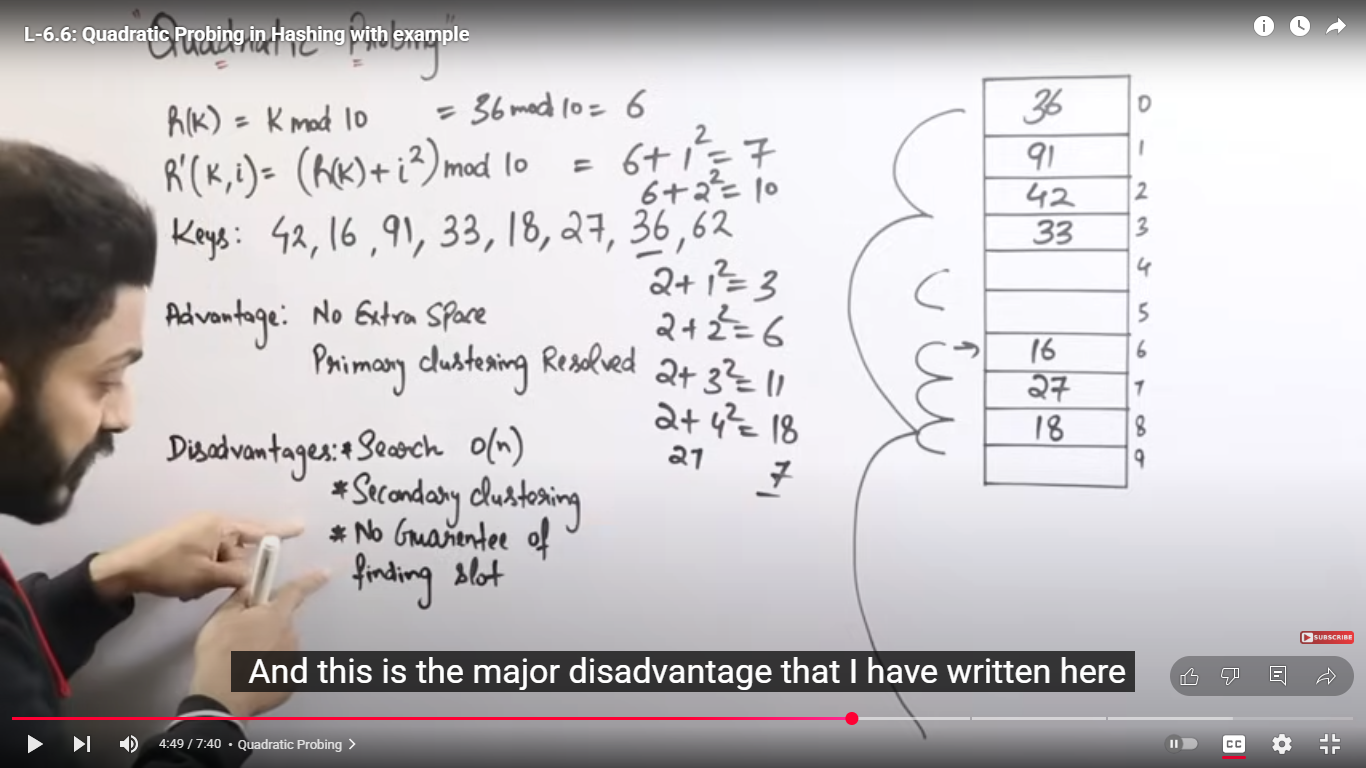 L-6.6: Quadratic Probing in Hashing with example
"Quadratic Probing"
h(K) = K mod 10 = 36 mod 10 = 6
h'(K,i) = (h(K) + i²) mod 10 = 6 + 1² = 7
6 + 2² = 10
Keys: 42, 16, 91, 33, 18, 27, 36, 62
2 + 1² = 3
Advantage: No Extra Space
2 + 2² = 6
Primary clustering Resolved
2 + 3² = 11
2 + 4² = 18
Disadvantages: * Search O(n)
27 7
* Secondary clustering
* No Guarentee of
finding slot
36 0
91 1
42 2
33 3
4
5
16 6
27 7
18 8
9
SUBSCRIBE
And this is the major disadvantage that I have written here
4:49 / 7:40 • Quadratic Probing
CC